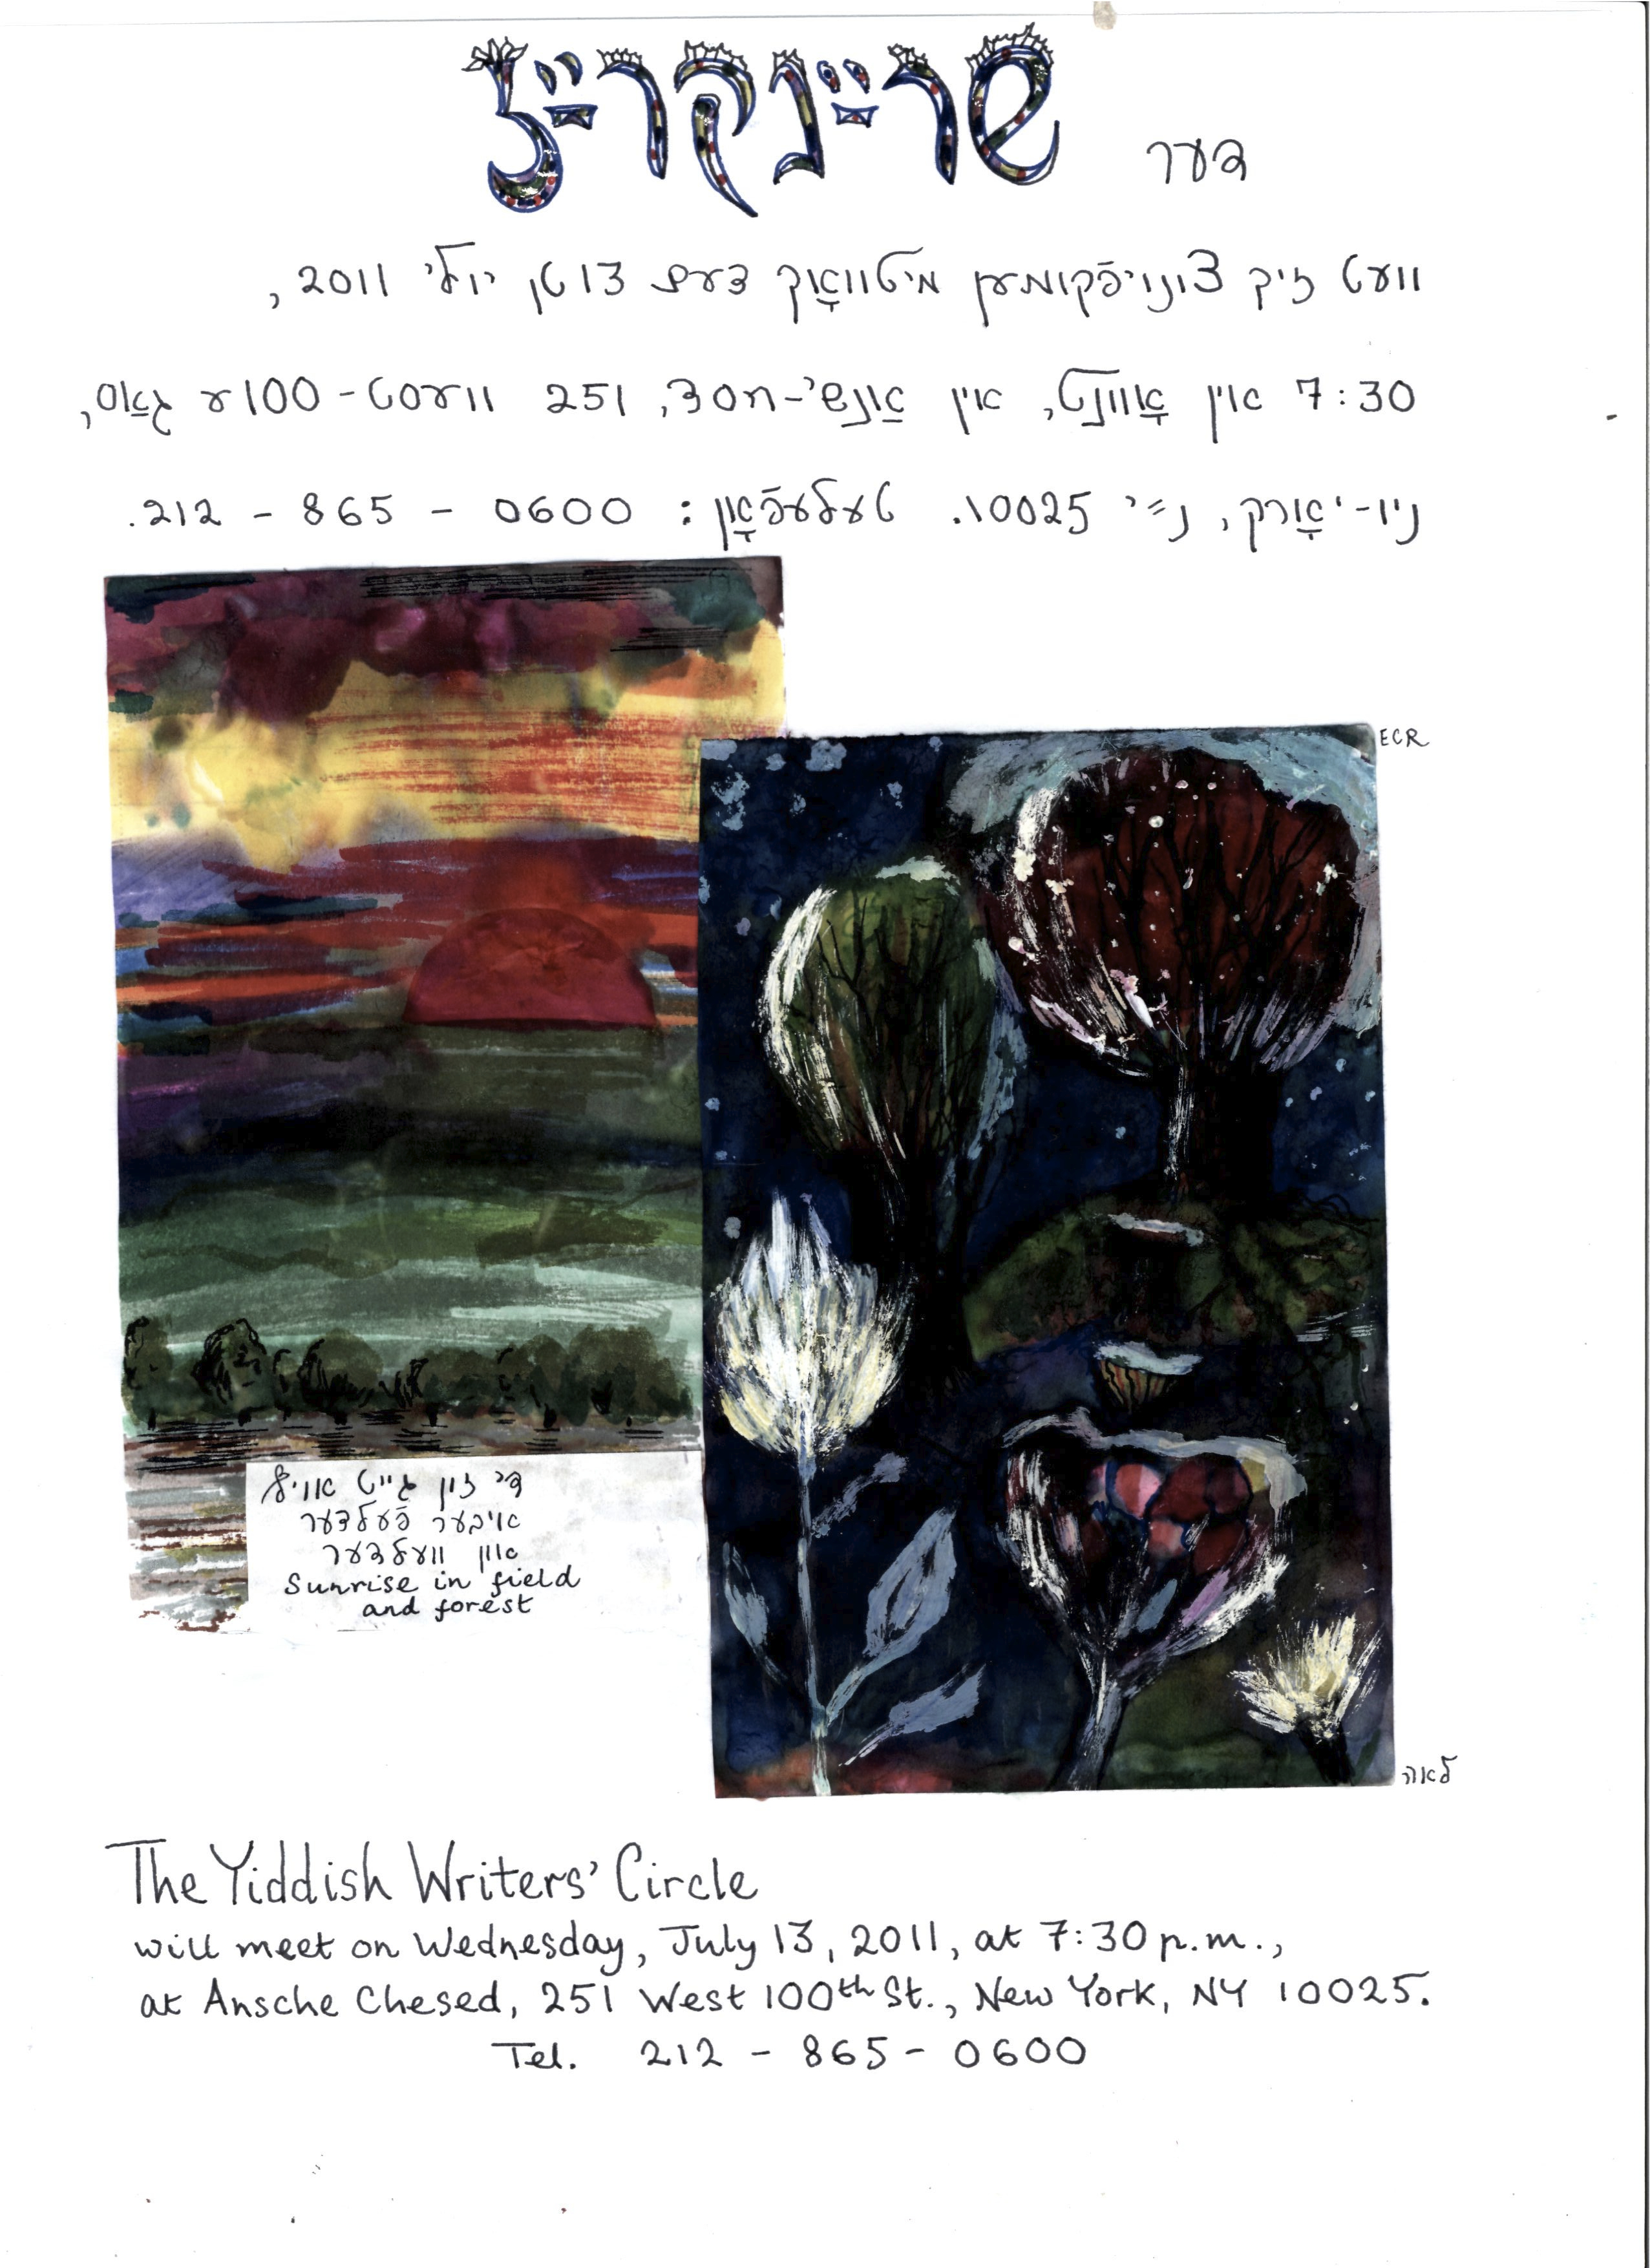 דער שרײַנקרײַז
וועט זיך צונויפֿקומען מיטוואָך דעם 13טן יולי 2011,
7:30 אין אָוונט, אין אַנשי-חסד, 251 וועסט-100ער גאַס,
ניו-יאָרק, נ״י 10025. טעלעפֿאָן: 212 - 865 - 0600.
ECR
די זון גייט אויף
איבער פֿעלדער
און וועלדער
Sunrise in field
and forest
לאה
The Yiddish Writers' Circle
will meet on Wednesday, July 13, 2011, at 7:30 p.m.,
at Ansche Chesed, 251 West 100th St., New York, NY 10025.
Tel. 212 - 865 - 0600